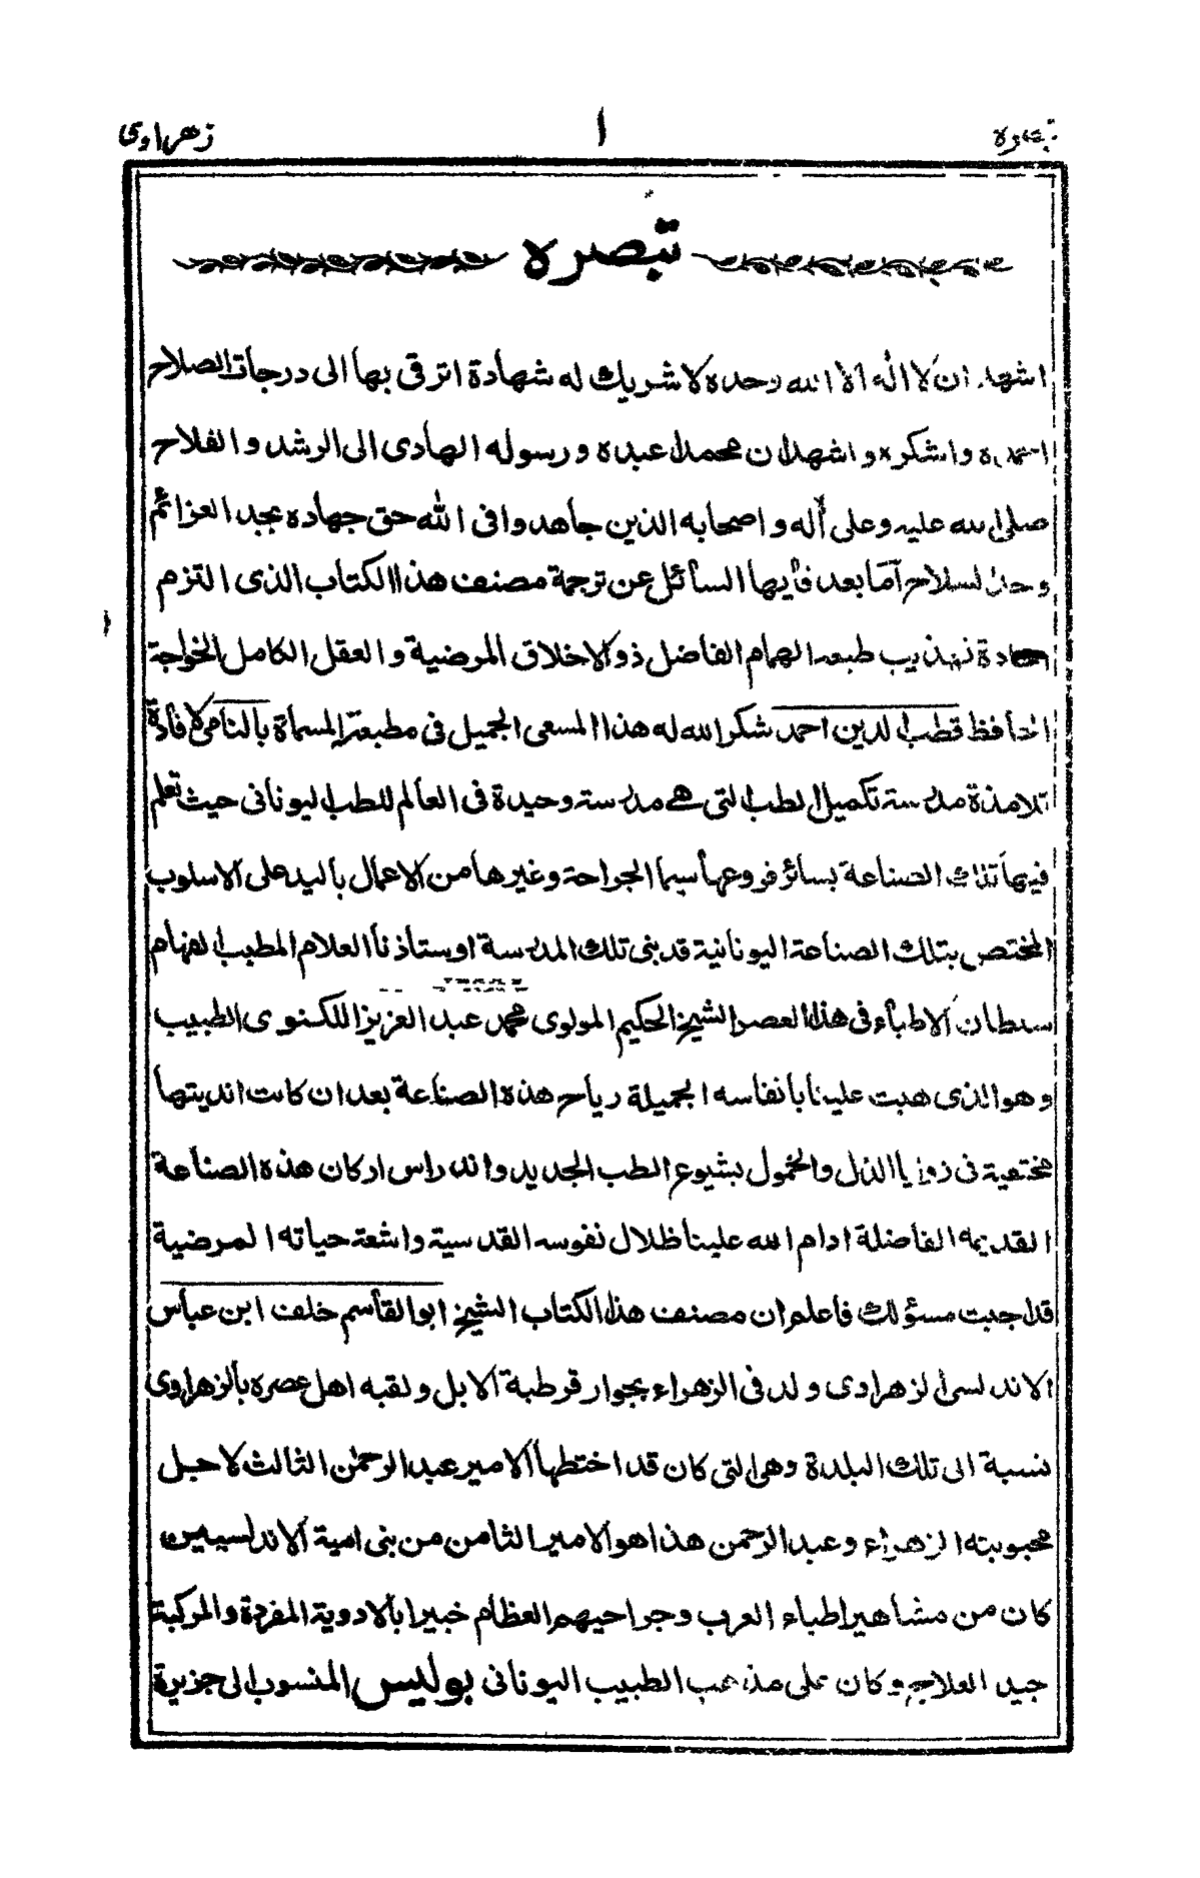 تبصره ١ زهراوى
تبصره
اشهد ان لا اله الا الله وحده لا شريك له شهادة اترقى بها الى درجات الصلاح
احمده واشكره واشهد ان محمدا عبده ورسوله الهادى الى الرشد والفلاح
صلى الله عليه وعلى أله واصحابه الذين جاهدوا فى الله حق جهاده بجد العزائم
السلاح امّا بعد فأيها السائل عن ترجمة مصنف هذا الكتاب الذى التزم
تهذيب طبعه الهمام الفاضل ذو الاخلاق المرضية والعقل الكامل الخواجة
الحافظ قطب الدين احمد شكر الله له هذا المسعى الجميل فى مطبعته المسماة بالنامى لافادة
تلامذة مدرسة تكميل الطب التى هے مدرسة وحيدة فى العالم للطب اليونانى حيث تعلم
فيها تلك الصناعة بسائر فروعها سيما الجراحة وغيرها من الاعمال باليد على الاسلوب
المختص بتلك الصناعة اليونانية قد بنى تلك المدرسة اوستاذنا العلام المطبب الفهام
سلطان الاطباء فى هذا العصر الشيخ الحكيم المولوى محمد عبد العزيز اللكنوى الطبيب
وهو الذى هبت علينا بانفاسه الجميلة رياح هذه الصناعة بعد ان كانت انديتها
مختفية فى زوايا الذل والخمول بشيوع الطب الجديد واندراس اركان هذه الصناعة
القديمه الفاضلة ادام الله علينا ظلال نفوسه القدسية واشعة حياته المرضية
قد اجبت مسؤلك فاعلم ان مصنف هذا الكتاب الشيخ ابو القاسم خلف ابن عباس
الاندلسى الزهراوى ولد فى الزهراء بجوار قرطبة الابل ولقبه اهل عصره بالزهراوى
نسبة الى تلك البلدة وهى التى كان قد اختطها الامير عبد الرحمٰن الثالث لاجل
محبوبته الزهراء وعبد الرحمن هذا هو الامير الثامن من بنى امية الاندلسيين
كان من مشاهير اطباء العرب وجراحيهم العظام خبيرا بالادوية المفردة والمركبة
جيد العلاج وكان على مذهب الطبيب اليونانى بوليس المنسوب الى جزيرة